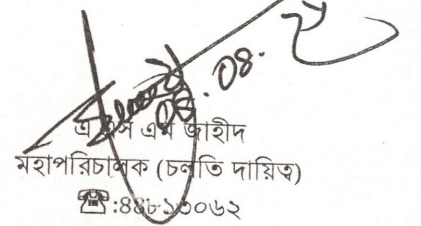 08.08.
এ এস এম জাহীদ
মহাপরিচালক (চলতি দায়িত্ব)
☎:৪৪৮১৩০৬২